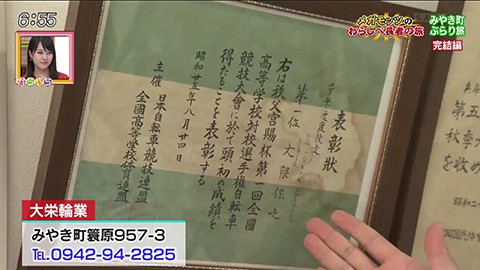 6:55
かちかち
メガモッツの
わらしべ長者の旅
みやき町
ぶらり旅
完結編
表彰狀
第一位 大隈保之
右は秩父宮賜杯第一回全國
高等学校対校選手権自転車
競技大會に於て頭初の成績を
得たることを表彰する
昭和廿五年八月廿四日
主催 日本自転車競技連盟
全國高等学校体育連盟
第五
秋季
を收め
昭和二
大栄輪業
みやき町簑原957-3
TEL.0942-94-2825